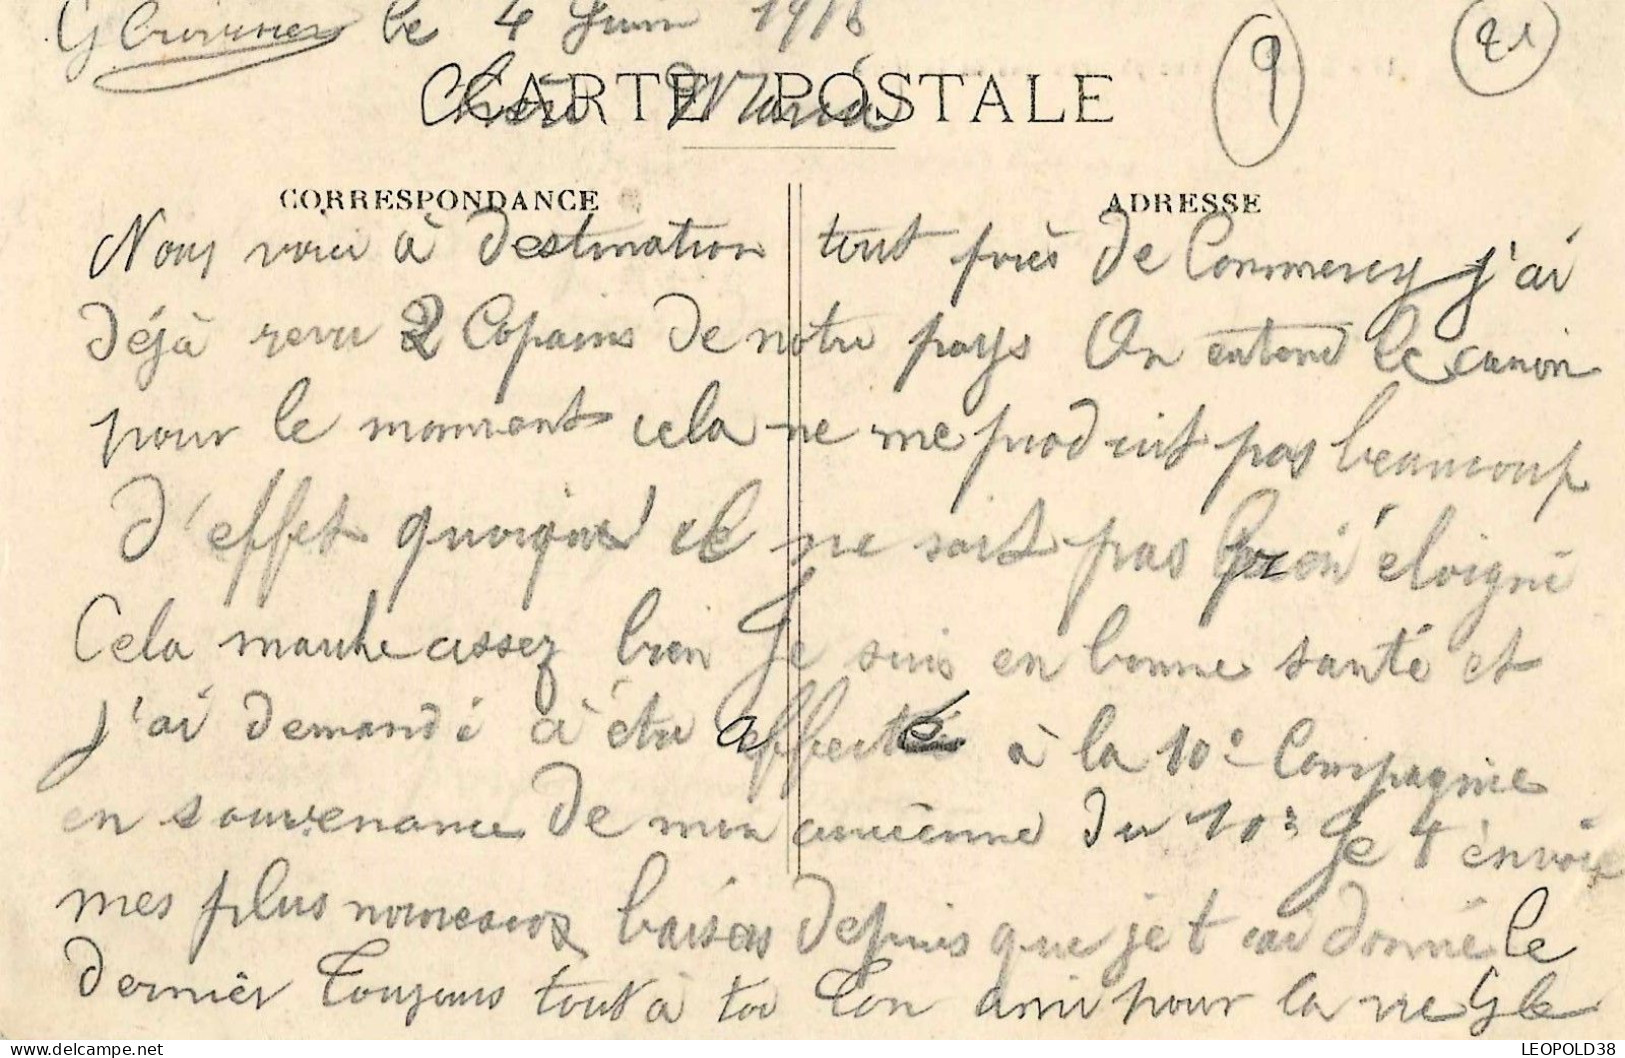 le 4 Juin 1918
9
21
CARTE POSTALE
Chère Maria
CORRESPONDANCE
ADRESSE
Nous voici à destination tout près de Commercy j'ai
déjà revu 2 Copains de notre pays On entend le canon
pour le moment cela ne me produit pas beaucoup
d'effet quoique il ne soit pas bien éloigné
Cela marche assez bien Je suis en bonne santé et
j'ai demandé à être affecté à la 10e Compagnie
en souvenance de mon ancienne du 10e Je t'envoie
mes plus nouveaux baisers depuis que je t'ai donné le
dernier Toujours tout à toi Ton ami pour la vie
LEOPOLD38